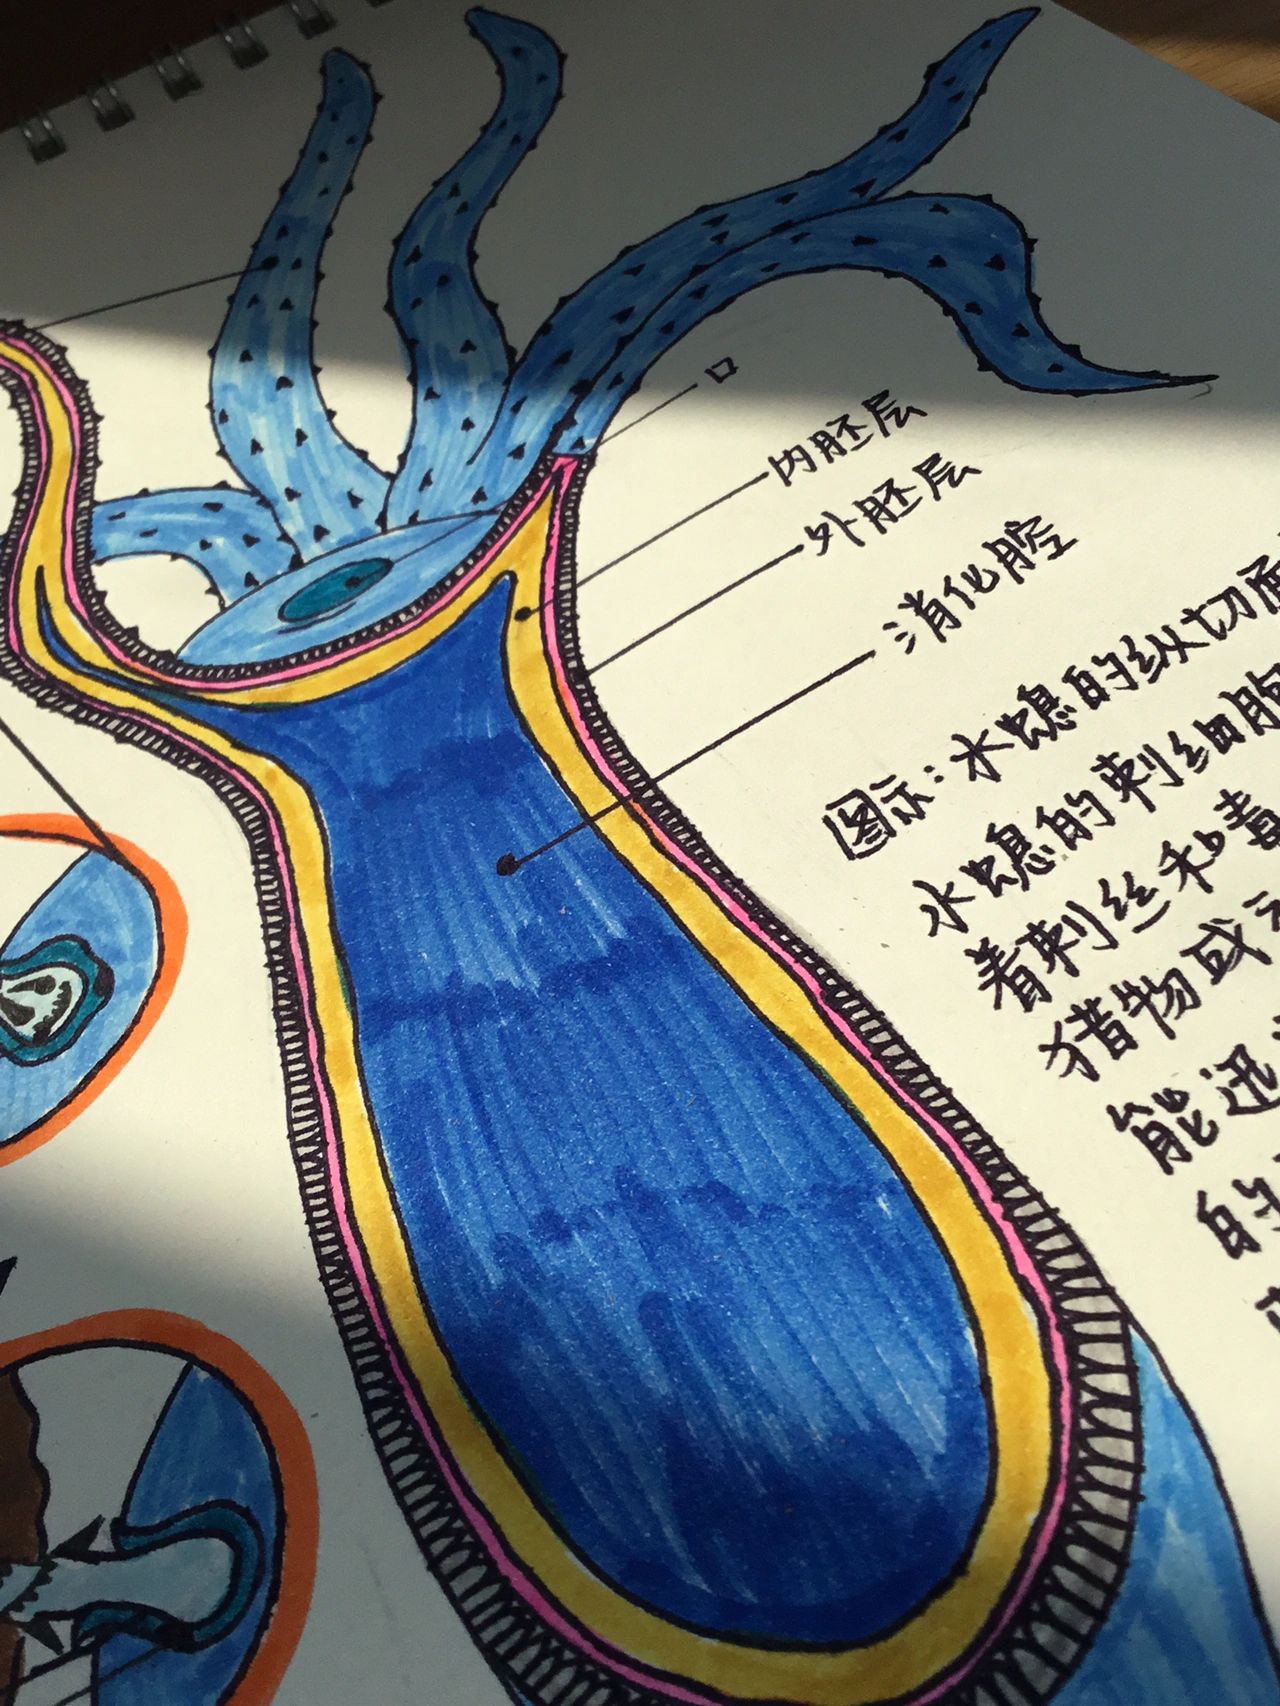 口
内胚层
外胚层
消化腔
图示：水螅的纵切面
水螅的刺细胞
着刺丝和毒
猎物或
能迅
的